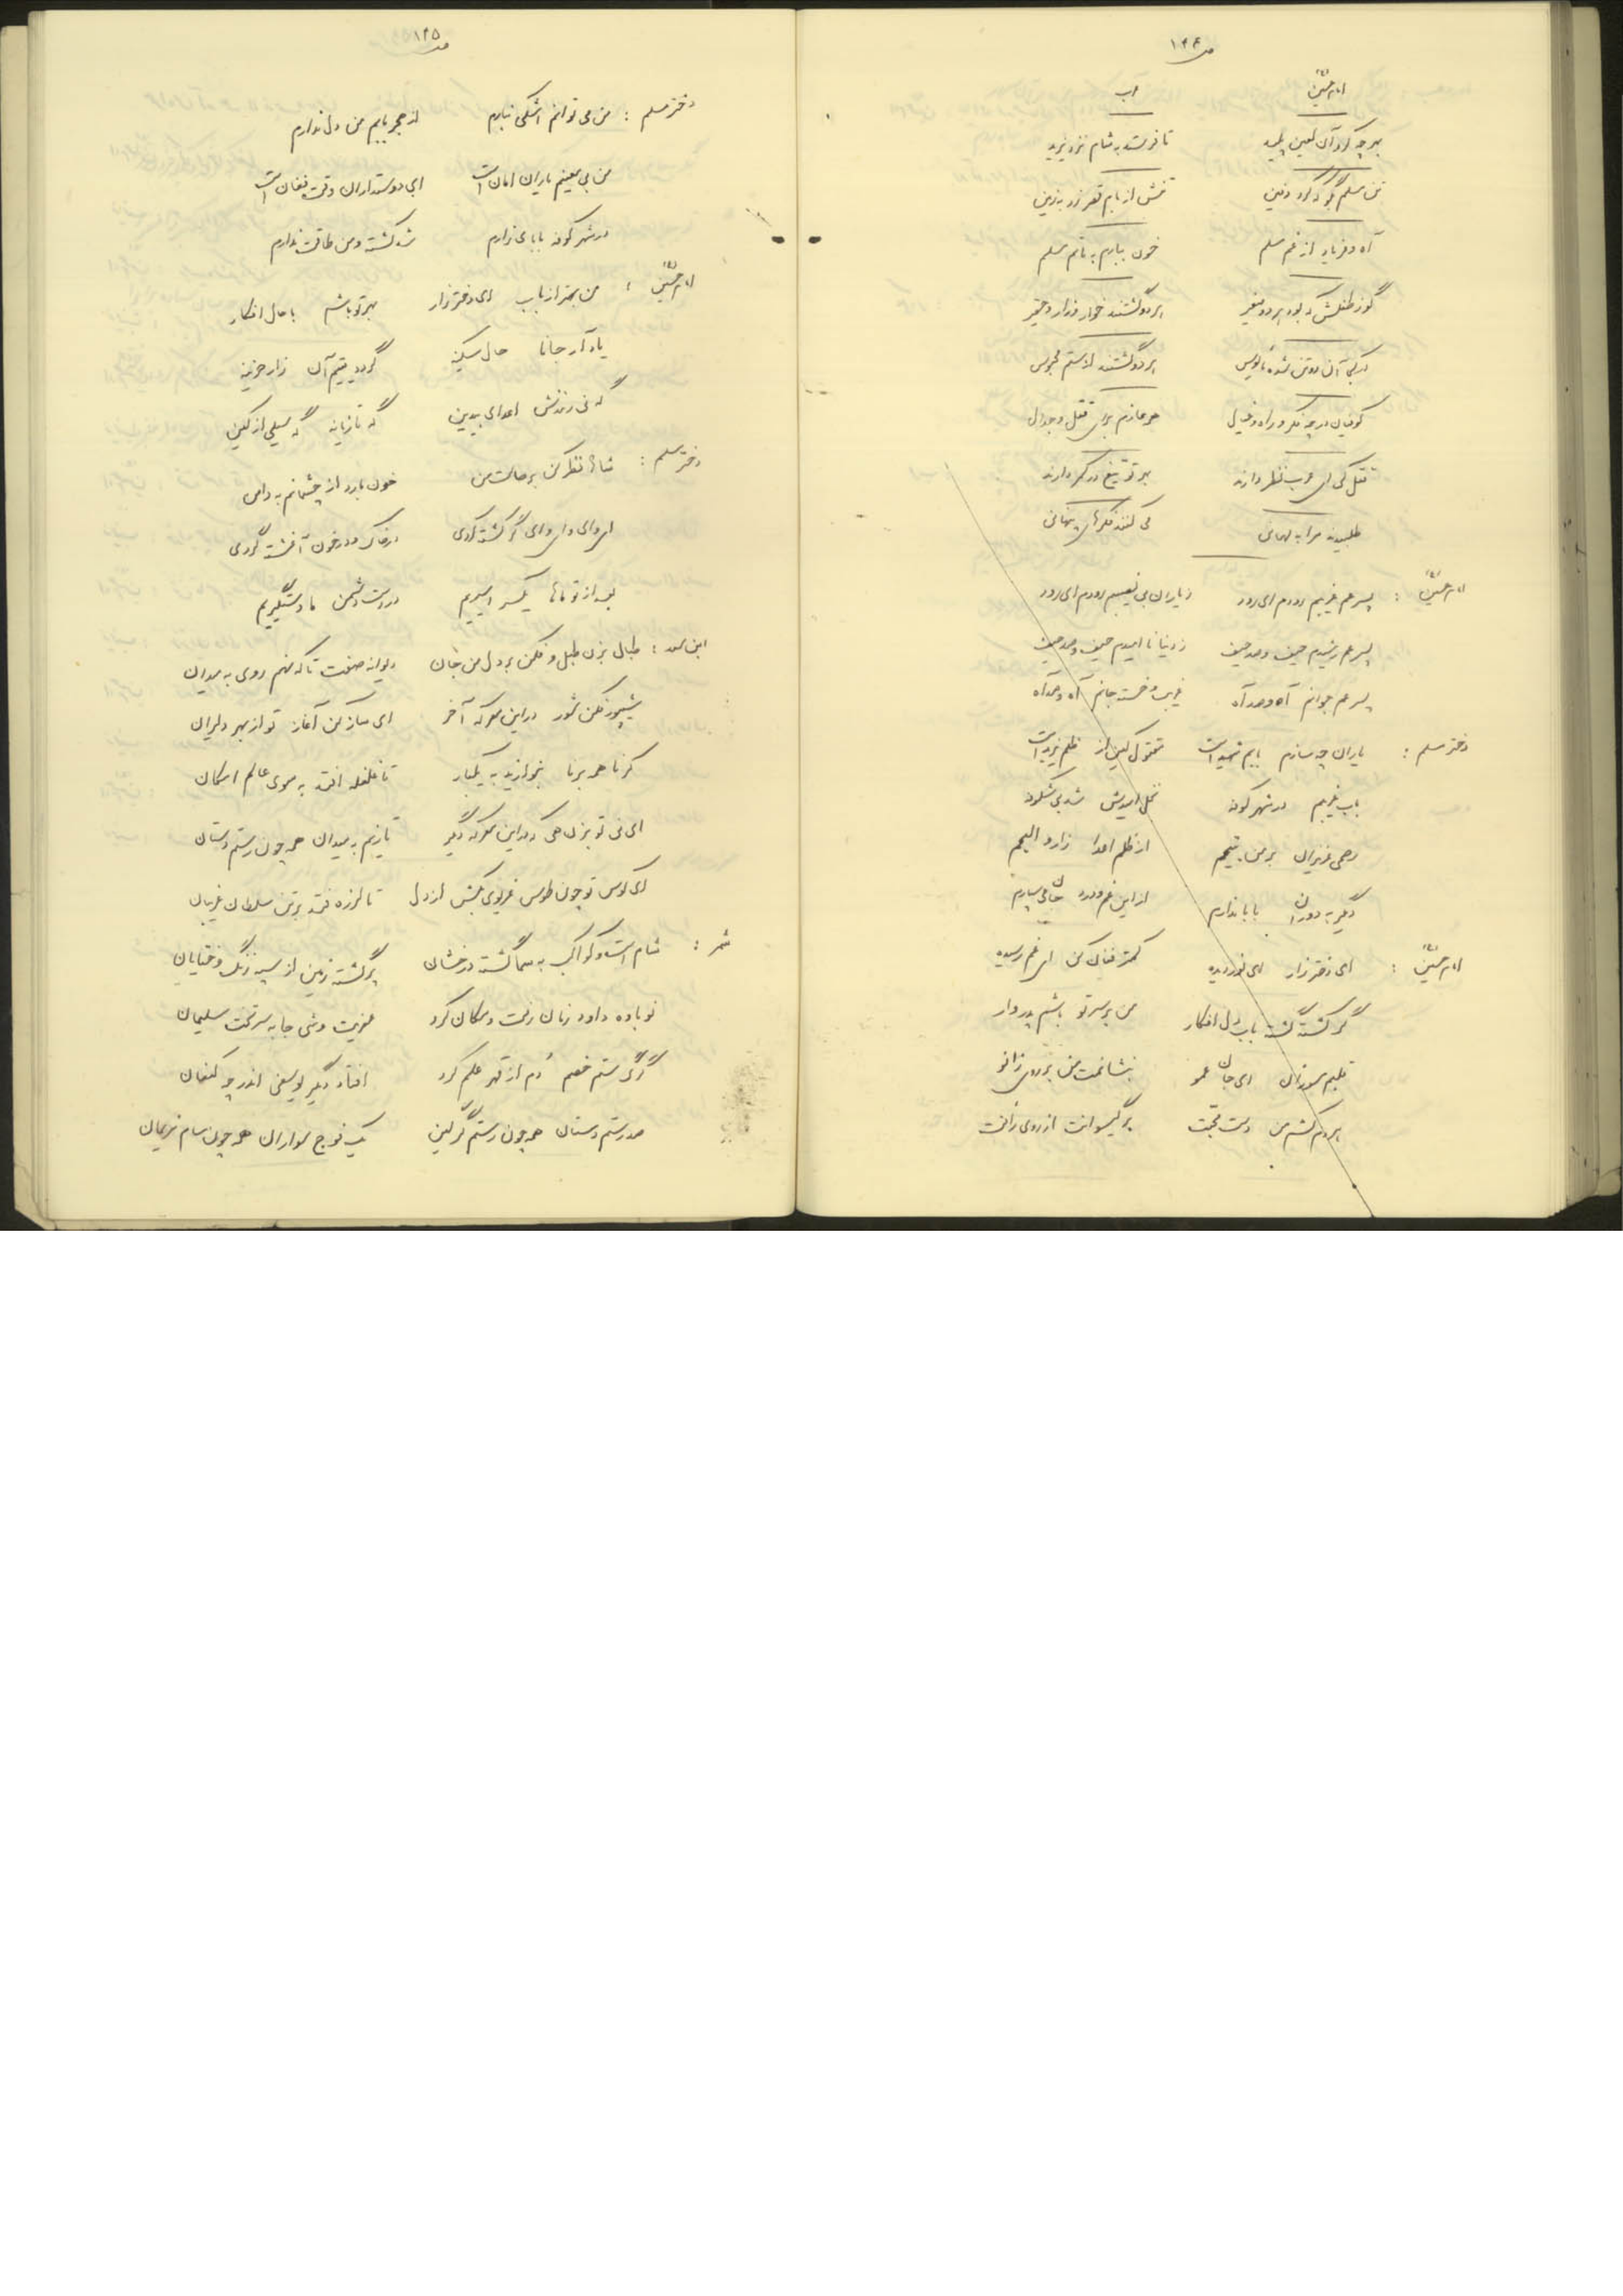 ص ۱۴۴
امام حسین عرب
بهر چه کرد آن لعین پلید تا فرستد به شام نزد یزید
تن مسلم بگو که کرد دفین تنش از بام قصر زد به زمین
آه و فریاد از غم مسلم خون ببارم به ماتم مسلم
گو ز طفلش که بود پر دو صغیر هر دو گشتند خوار و زار و حقیر
آن دو تن شده مأیوس هر دو گشتند از ستم محبوس
کوفیان در چه فکر و راه و خیال همه عازم برای قتل و جدال
قتل کی ای عرب نظر دارند بهر تو تیغ در کمر دارند
طلبیدند مرا به مهمانی می کنند فکرهای پنهانی
امام حسین : پسر عم غریبم رودم ای رود ز یاران بی نصیبم رودم ای رود
پسر عم رشیدم حیف و صد حیف ز دنیا ناامیدم حیف و صد حیف
پسر عم جوانم آه و صد آه غریب و خسته جانم آه و صد آه
دختر مسلم : یاران چه سازم بابم شهید است مقتول کین از ظلم یزید است
باب غریبم در شهر کوفه نخل امیدش شد بی شکوفه
رحمی عزیزان بر من یتیمم از ظلم اعدا زار و الیمم
دیگر به دوران بابا ندارم از این غم و درد جان می سپارم
امام حسین : ای دختر زار ای نور دیده کمتر فغان کن ای غم رسیده
گر کشته گشته باب دل افکار من بر سر تو باشم پدر وار
قلبم مسوزان ای جان عمو بنشانمت من بر روی زانو
هر دم کشم من دست محبت بر گیسوانت از روی رأفت
ص ۱۴۵
دختر مسلم : من می توانم اشکی نبارم از هجر بابم من دل ندارم
من بی معینم یاران امان است ای دوستداران وقت فغان است
در شهر کوفه بابای زارم شد کشته و من طاقت ندارم
امام حسین : من بهتر از باب ای دختر زار بهر تو باشم با حال افکار
یاد آر جانا حال سکینه گردد یتیم آن زار حزینه
که نی زنندش اعدای بیدین گه تازیانه گه سیلی از کین
دختر مسلم : شاها نظر کن بر حالت من خون بارد از چشمانم به دامن
ای وای و ای وای گر کشته گردی در خاک و در خون آغشته گردی
بعد از تو ماها یکسر اسیریم در دست دشمن ما دستگیریم
ابن سعد : طبال بزن طبل و فکن بر دل من جان دیوانه صفت تا که نهم روی به میدان
شیپور فکن شور در این معرکه آخر ای ساز کن آغاز تو از بهر دلیران
کرنا همه برنا بنوازید به یکبار تا غلغله افتد به سوی عالم امکان
ای نی تو بزن هی که در این معرکه دیگر تازیم به میدان همه چون رستم دستان
ای کوس تو چون طوس غریوی بکش از دل تا لرزه فتد بر تن سلطان غریبان
شمر : شام است و کواکب به سما گشته درخشان برگشته زمین از سپه زنگ و ختایان
نوباده داود زمان رفت و مکان کرد عفریت وشی جا به سر تخت سلیمان
گرگ ستم خصم دم از قهر علم کرد افتاد دگر یوسفی اندر چه کنعان
صد رستم دستان همه چون رستم گرگین یک فوج سواران همه چون سام نریمان